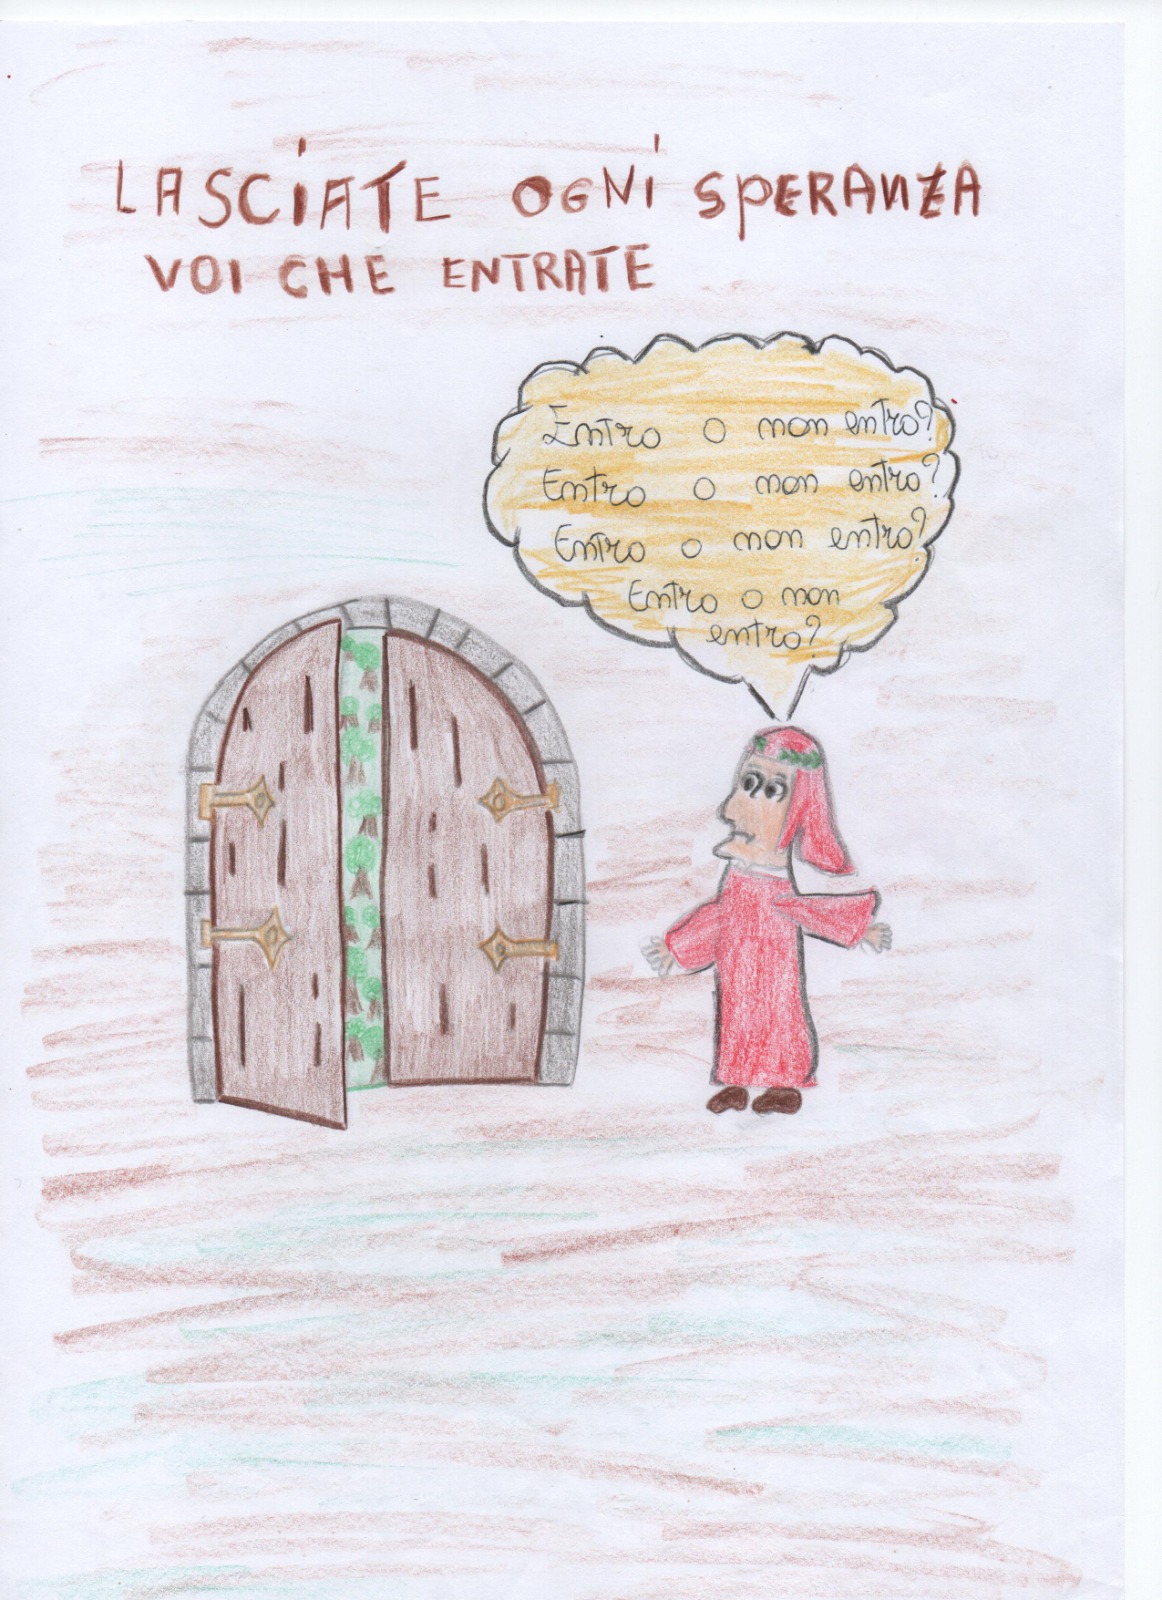 LASCIATE OGNI SPERANZA
VOI CHE ENTRATE
Entro o non entro?
Entro o non entro?
Entro o non entro?
Entro o non
entro?